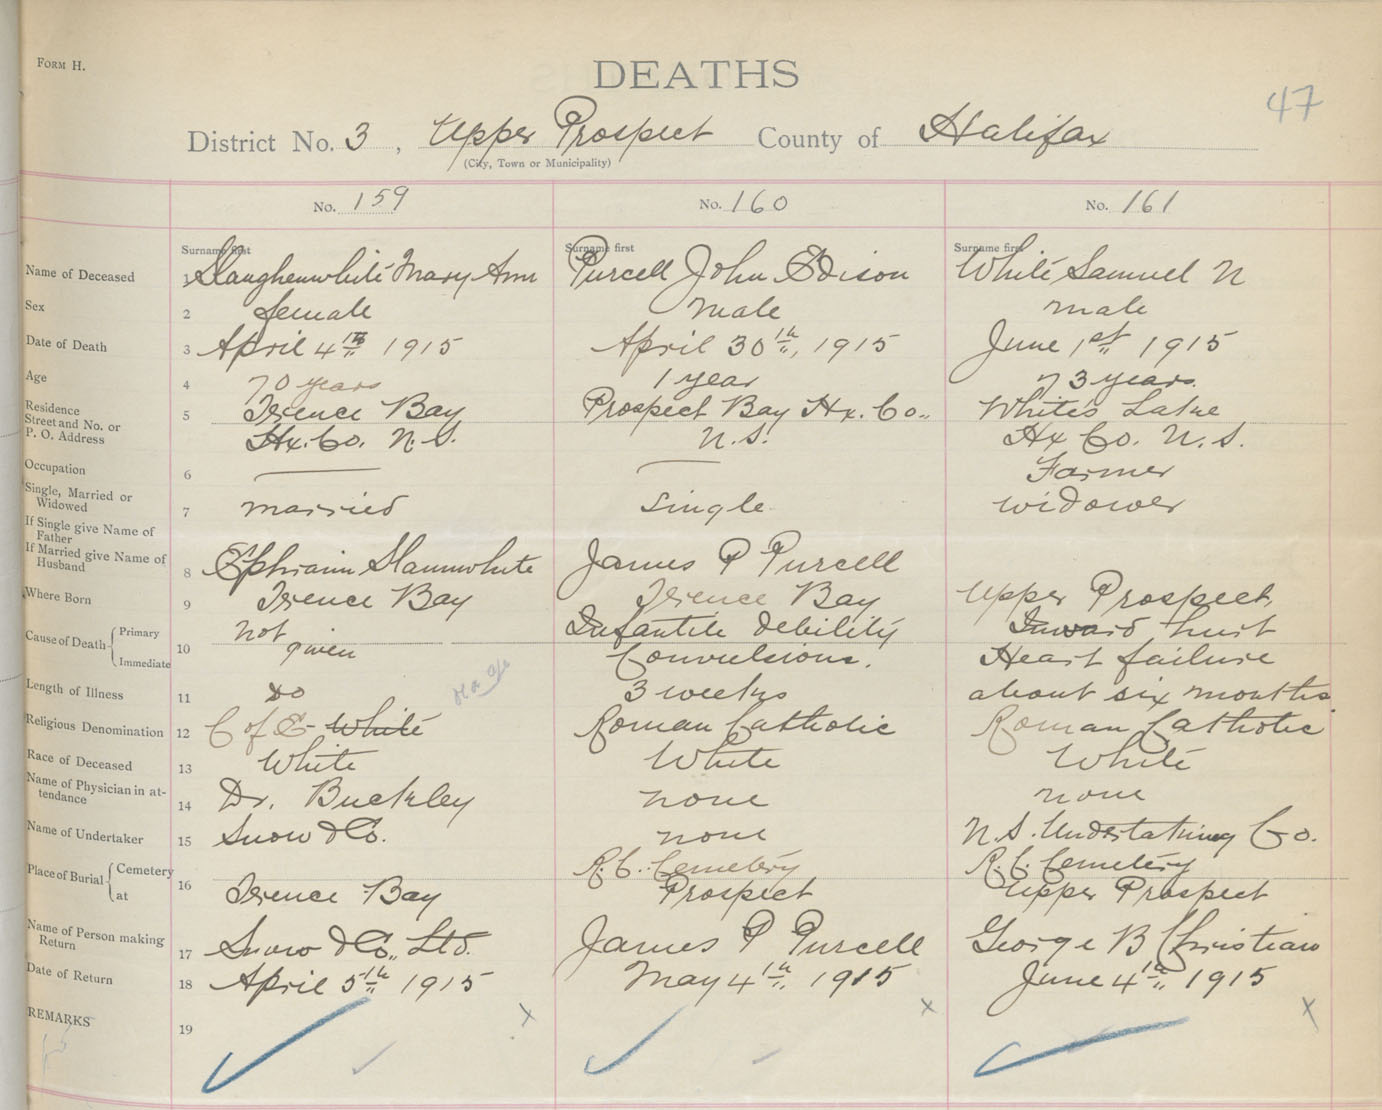 FORM H.
DEATHS
47
District No. 3, Upper Prospect County of Halifax
(City, Town or Municipality)
No. 159 No. 160 No. 161
Surname first Surname first Surname first
Name of Deceased 1 Slaughenwhite Mary Ann Purcell John Edison White Samuel N
Sex 2 female male male
Date of Death 3 April 4th 1915 April 30th, 1915 June 1st 1915
Age 4 70 years 1 year 73 years.
Residence 5 Terence Bay Prospect Bay Hx. Co. White's Lake
Street and No. or
P. O. Address Hx. Co. N.S. N.S. Hx Co. N.S.
Occupation 6 — — Farmer
Single, Married or
Widowed 7 married single widower
If Single give Name of
Father
If Married give Name of
Husband 8 Ephraim Slaunwhite James P Purcell
Where Born 9 Terence Bay Terence Bay Upper Prospect,
Cause of Death Primary 10 not given Infantile debility Inward hurt
Immediate Convulsions. Heart failure
Length of Illness 11 do 3 weeks about six months
Religious Denomination 12 C of E - White Roman Catholic Roman Catholic
Race of Deceased 13 White White White
Name of Physician in at-
tendance 14 Dr. Buckley none none
Name of Undertaker 15 Snow & Co. none N.S. Undertaking Co.
Place of Burial Cemetery R.C. Cemetery R.C. Cemetery
at 16 Terence Bay Prospect Upper Prospect
Name of Person making
Return 17 Snow & Co., Ltd. James P Purcell George B Christian
Date of Return 18 April 5th 1915 May 4th 1915 June 4th 1915
REMARKS 19 x x x